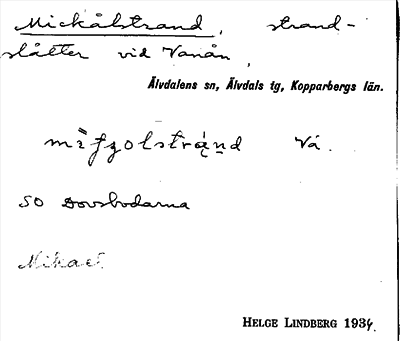 Mickålstrand, strand-
slåtter vid Vanån,
Älvdalens sn, Älvdals tg, Kopparbergs län.
Vå.
SO Dovsbodarna
Mikael
HELGE LINDBERG 1934.